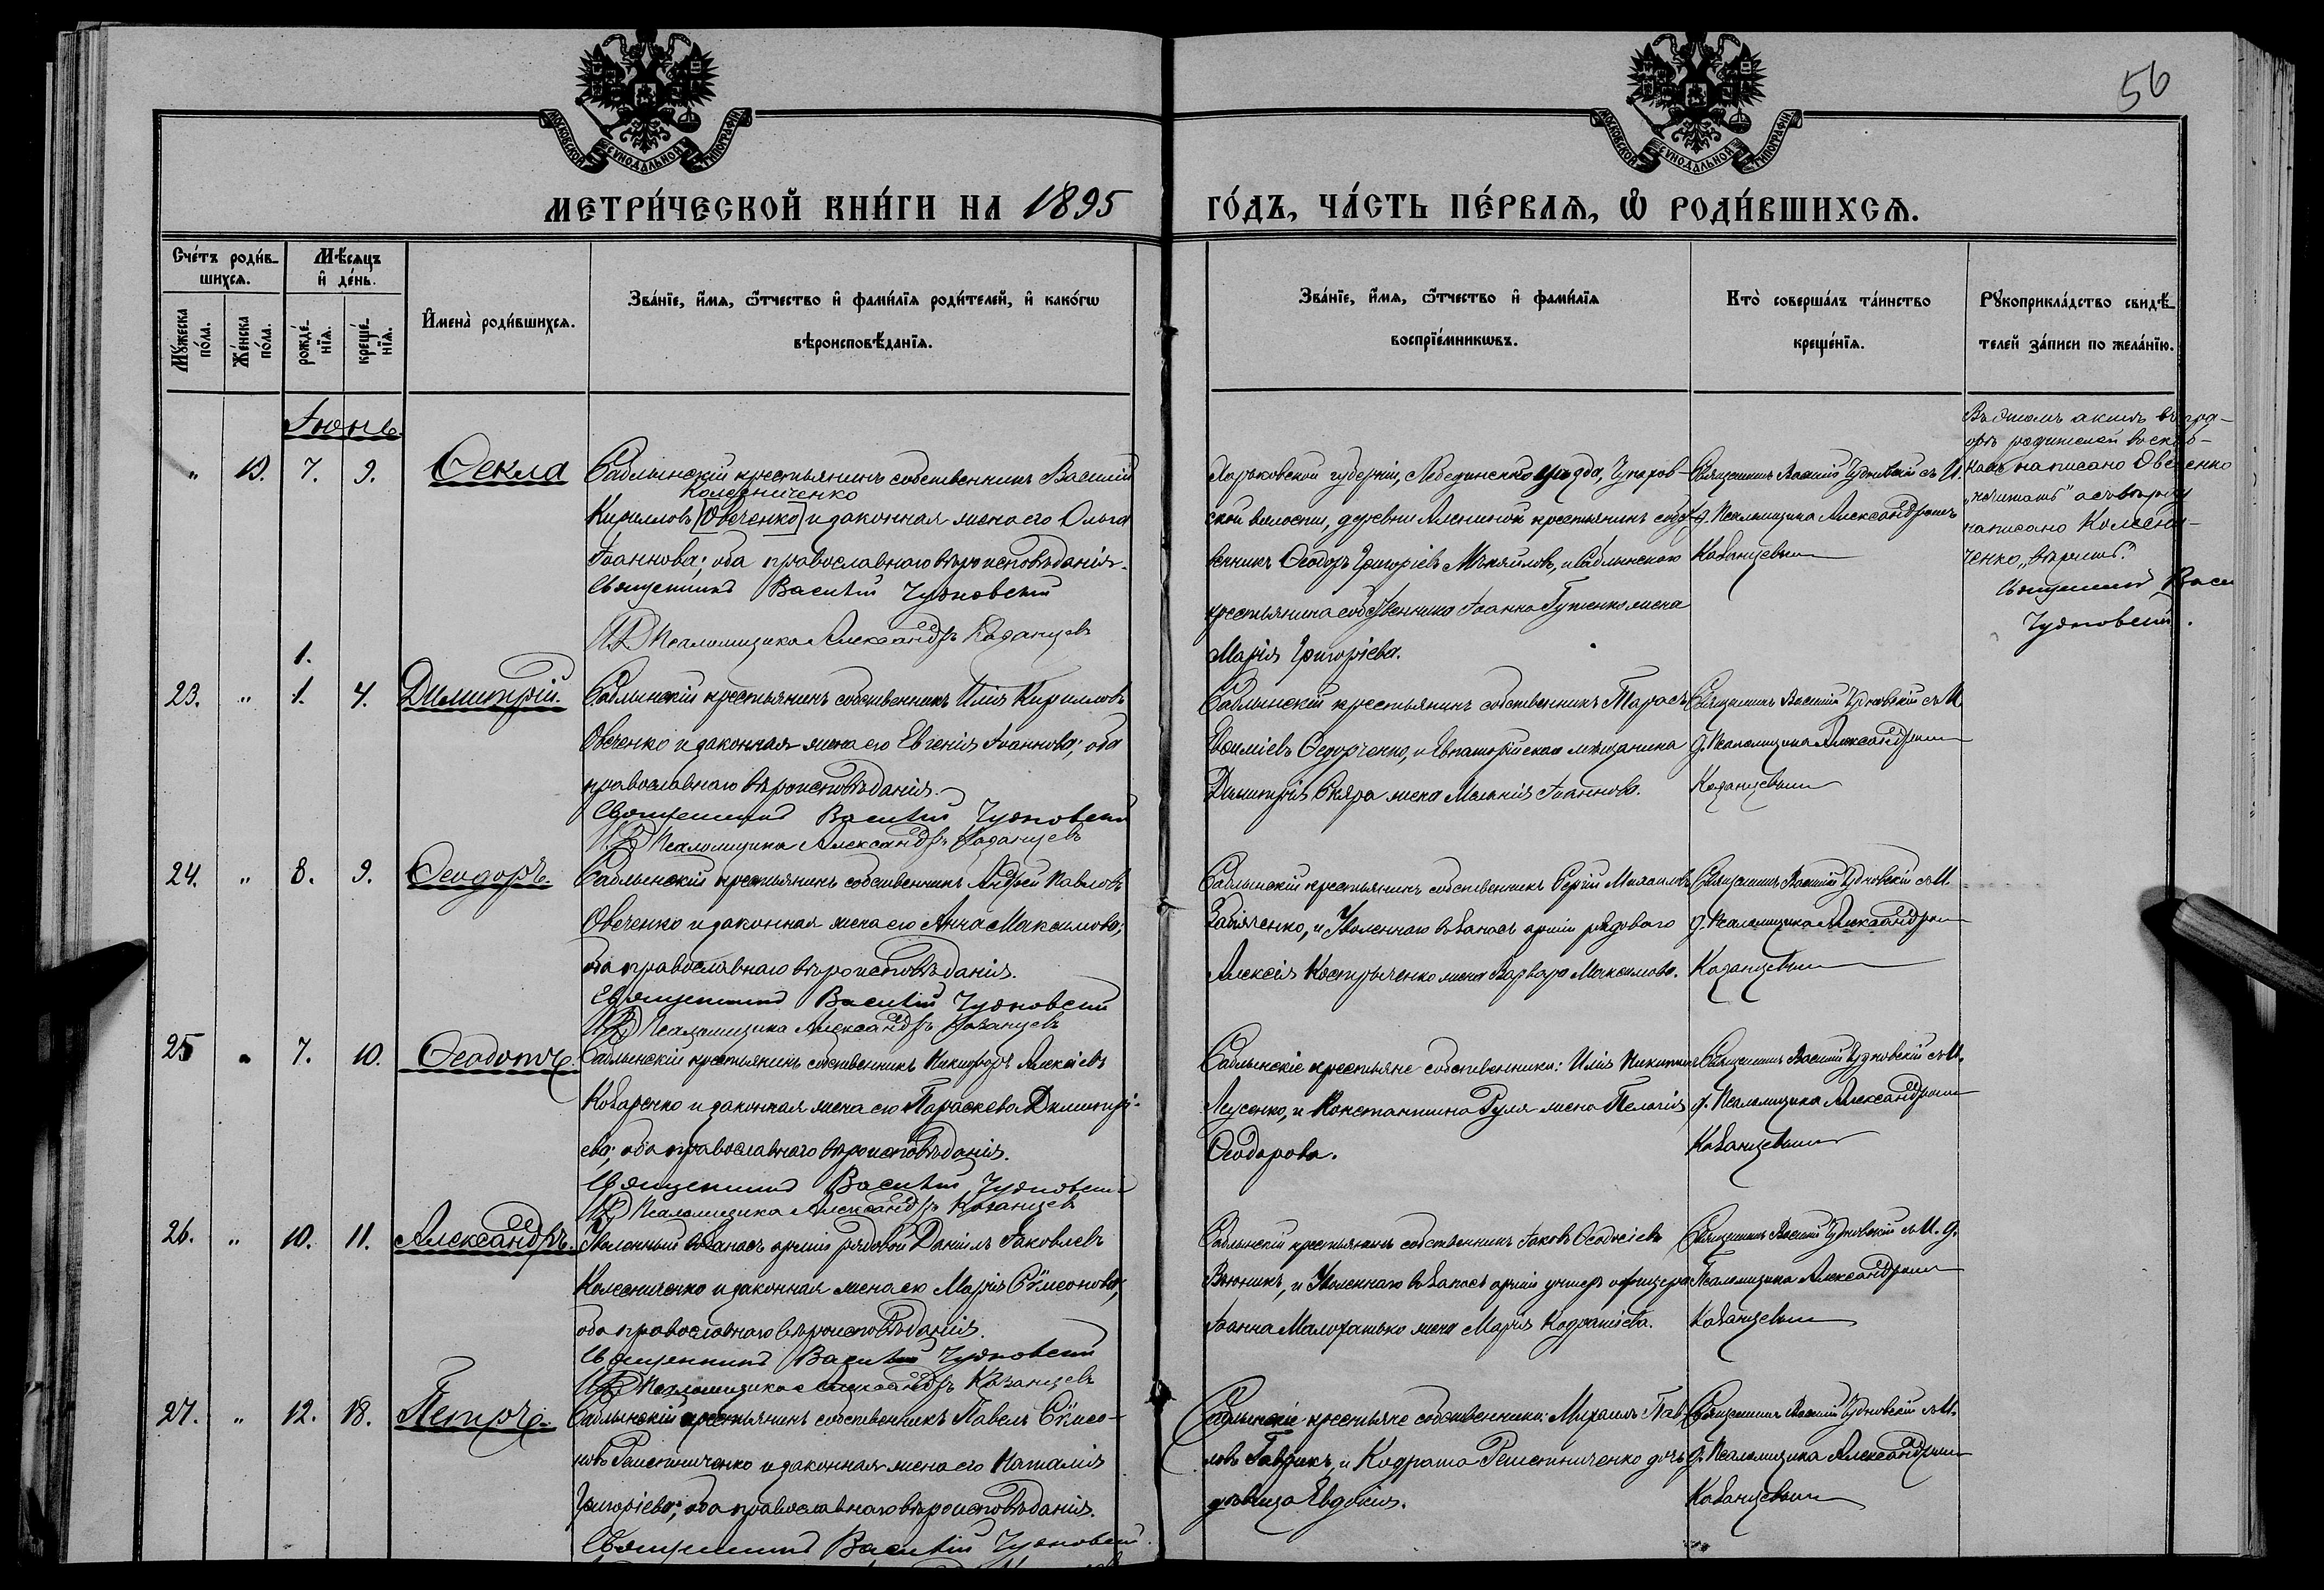 56
МОСКОВСКОЙ СУНОДАЛЬНОЙ ТИПОГРАФІИ
МОСКОВСКОЙ СУНОДАЛЬНОЙ ТИПОГРАФІИ
МЕТРИ́ЧЕСКОЙ КНИ́ГИ НА 1895
ГО́ДЪ, ЧА́СТЬ ПЕ́РВАѦ, Ѽ РОДИ́ВШИХСѦ.
Сче́тъ роди́в-
шихсѧ.
Мꙋ́жеска
по́ла.
Же́нска
по́ла.
Мѣ́сѧцъ
и҆ де́нь.
рожде́-
нїѧ.
креще́-
нїѧ.
И҆мена̀ роди́вшихсѧ.
Зва́нїе, и҆́мѧ, ѻ҆́тчество и҆ фами́лїѧ роди́телей, и҆ како́гѡ
вѣроисповѣ́данїѧ.
Зва́нїе, и҆́мѧ, ѻ҆́тчество и҆ фами́лїѧ
воспрїе́мникѡвъ.
Кто̀ соверша́лъ та́инство
креще́нїѧ.
Рꙋкоприкла́дство свидѣ́-
телей за́писи по жела́нїю.
Іюнь.
" 13. 7. 9. Ѳекла
Саблынскій крестьянинъ собственникъ Василій
Колесниченко
Кирилловъ [Овченко] и законная жена его Ольга
Іоаннова; оба православнаго вѣроисповѣданія.
Священникъ Василій Чудновскій
И. Д. Псаломщика Александръ Казанцевъ
Харьковской губерніи, Лебединскаго уѣзда,
ской волости, деревни крестьянинъ собст-
венникъ Ѳеодоръ Григоріевъ Михайловъ, и Саблынскаго
крестьянина собственника Іоанна жена
Марія Григоріева.
Священникъ Василій Чудновскій съ И.
д. Псаломщика Александромъ
Казанцевымъ
Въ этомъ актѣ въ гра-
фѣ родителей въ скоб-
кахъ написано Овченко
"не читать" а сверху
написано Колесни-
ченко "вѣрить".
Священникъ Васи
Чудновскій.
1.
23. " 1. 4. Димитрій.
Саблынскій крестьянинъ собственникъ Илія Кирилловъ
Овченко и законная жена его Евгенія Іоаннова; оба
православнаго вѣроисповѣданія.
Священникъ Василій Чудновскій
И. Д. Псаломщика Александръ Казанцевъ
Саблынскій крестьянинъ собственникъ Тарасъ
Евфиміевъ Ѳедорченко, и Евпаторійскаго мѣщанина
Димитрія Скляра жена Меланія Іоаннова.
Священникъ Василій Чудновскій съ И.
д. Псаломщика Александромъ
Казанцевымъ
24. " 8. 9. Ѳеодоръ.
Саблынскій крестьянинъ собственникъ Андрей Павловъ
Овченко и законная жена его Анна Максимова;
оба православнаго вѣроисповѣданія.
Священникъ Василій Чудновскій
И. Д. Псаломщика Александръ Казанцевъ
Саблынскій крестьянинъ собственникъ Сергій Михаиловъ
и Уволеннаго въ запасъ арміи рядоваго
Алексія жена Варвара Максимова.
Священникъ Василій Чудновскій съ И.
д. Псаломщика Александромъ
Казанцевымъ
25 " 7. 10. Ѳеодотъ.
Саблынскій крестьянинъ собственникъ Никифоръ Алексіевъ
Коваренко и законная жена его Параскева Димитрі-
ева; оба православнаго вѣроисповѣданія.
Священникъ Василій Чудновскій
И. Д. Псаломщика Александръ Казанцевъ
Саблынскіе крестьяне собственники: Илія Никитинъ
Лусенко, и Константина Руля жена Пелагія
Ѳеодорова.
Священникъ Василій Чудновскій съ И.
д. Псаломщика Александромъ
Казанцевымъ
26. " 10. 11. Александръ.
Уволенный въ запасъ арміи рядовой Даніилъ Іаковлевъ
Колесниченко и законная жена его Марія Сѵмеонова;
оба православнаго вѣроисповѣданія.
Священникъ Василій Чудновскій
И. Д. Псаломщика Александръ Казанцевъ
Саблынскій крестьянинъ собственникъ Іаковъ Ѳеодосіевъ
Вьюникъ, и Уволеннаго въ запасъ арміи унтеръ офицера
Іоанна жена Марія Кодратіева.
Священникъ Василій Чудновскій съ И. д.
Псаломщика Александромъ
Казанцевымъ
27. " 12. 18. Петръ.
Саблынскій крестьянинъ собственникъ Павелъ Сѵмео-
новъ Решетниченко и законная жена его Наталія
Григоріева; оба православнаго вѣроисповѣданія.
Священникъ Василій Чудновскій
Саблынскіе крестьяне собственники: Михаилъ Пав-
ловъ Гаврикъ, и Кодрата Решетниченко дочь
дѣвица Евдокія.
Священникъ Василій Чудновскій съ И.
д. Псаломщика Александромъ
Казанцевымъ